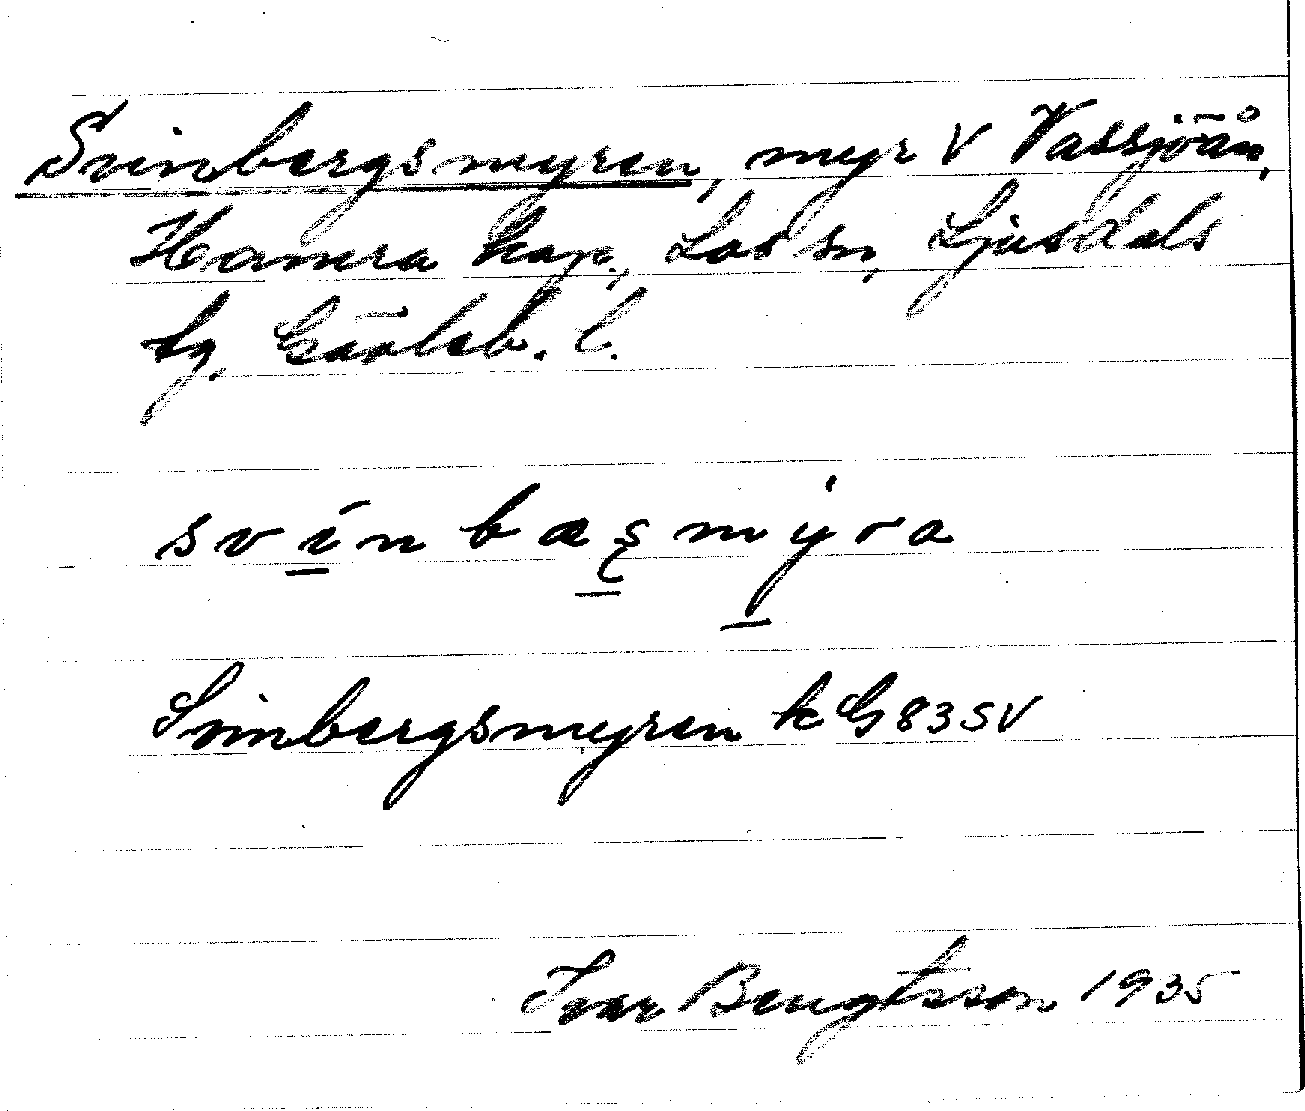 Svinbergsmyren, myr V Vassjöån,
Hamra kap., Los sn, Ljusdals
tg, Gävleb. l.
svı̄́nbæʂmýra
Svinbergsmyren k G 83 SV
Ivar Bengtsson 1935